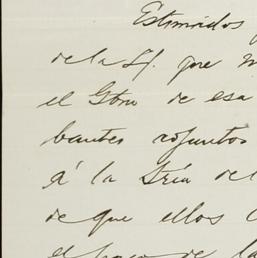 Estimados
de la H. que
el Gbno de esa
bantes adjuntos
á la Sría del
de que ellos
el pago de la